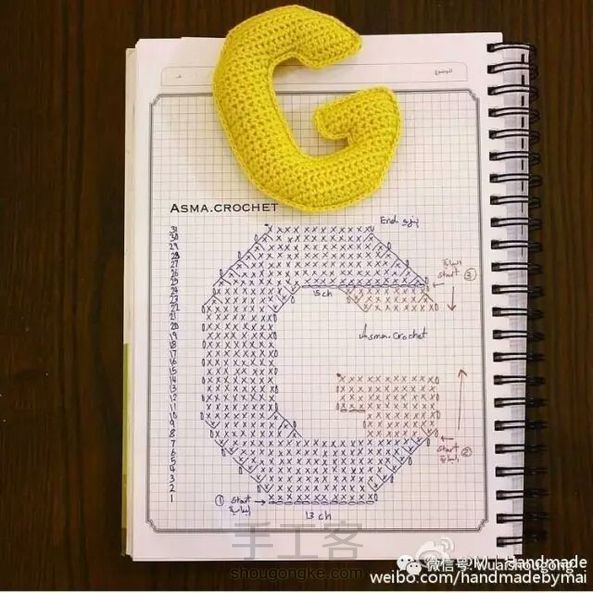 ASMA.CROCHET
31
30
29
28
27
26
25
24
23
22
21
20
19
18
17
16
15
14
13
12
11
10
9
8
7
6
5
4
3
2
1
End
start ③
15 ch
Asma.crochet
start ②
① start
13 ch
手工客
shougongke.com
微信号: wuaishougong
Handmade
weibo.com/handmadebymai